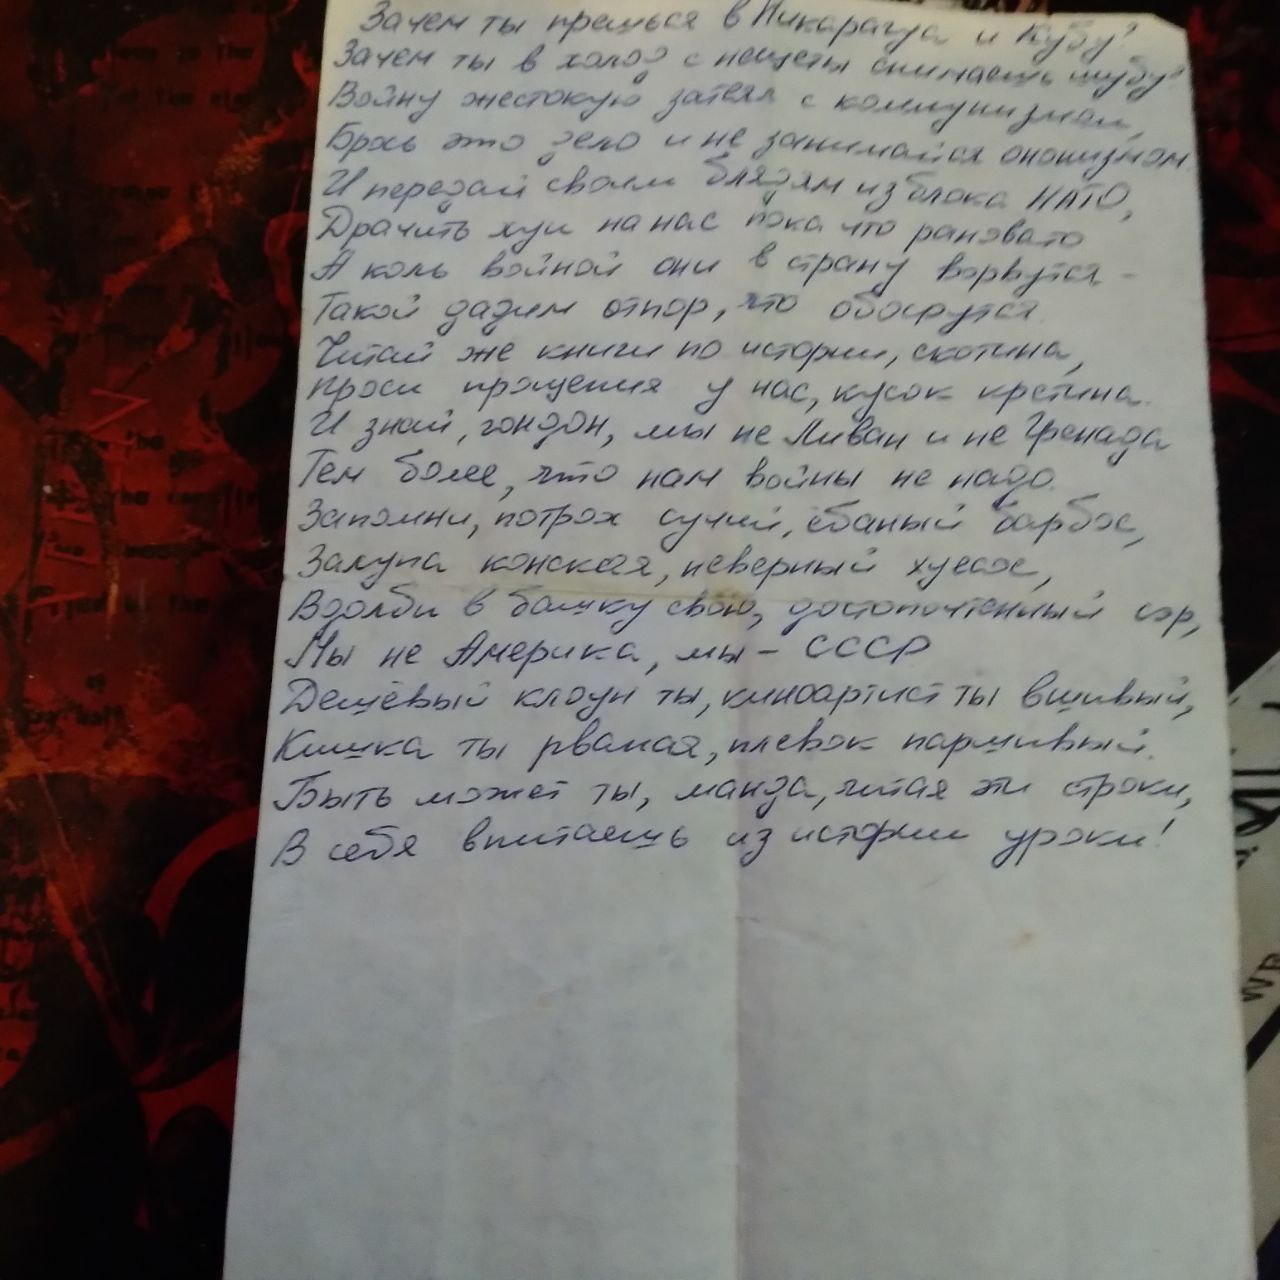 Зачем ты прешься в Никарагуа и Кубу?
Зачем ты в холод с нищеты снимаешь шубу?
Войну жестокую затеял с коммунизмом,
Брось это дело и не занимайся онанизмом.
И передай своим блядям из блока НАТО,
Драчить хуи на нас пока что рановато
А коль войной они в страну ворвутся –
Такой дадим отпор, что обосрутся.
Читай же книги по истории, скотина,
Проси прощения у нас, кусок кретина.
И знай, гондон, мы не Ливан и не Гренада
Тем более, что нам войны не надо.
Запомни, потрох сучий, ёбаный барбос,
Залупа конская, неверный хуесос,
Вдолби в башку свою, достопочтенный сэр,
Мы не Америка, мы – СССР
Дешёвый клоун ты, киноартист ты вшивый,
Кишка ты рваная, плевок паршивый.
Быть может ты, манда, читая эти строки,
В себя впитаешь из истории уроки!